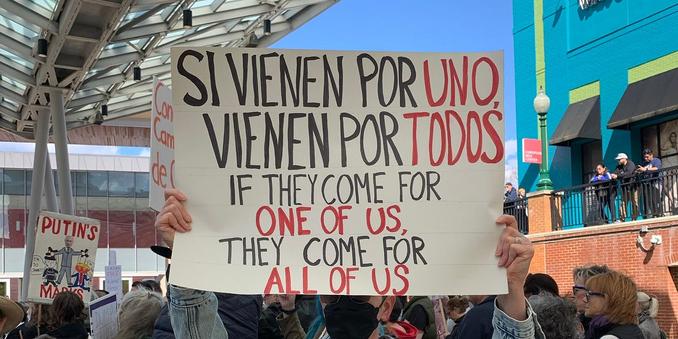 SI VIENEN POR UNO,
VIENEN POR TODOS
IF THEY COME FOR
ONE OF US,
THEY COME FOR
ALL OF US
PUTIN'S